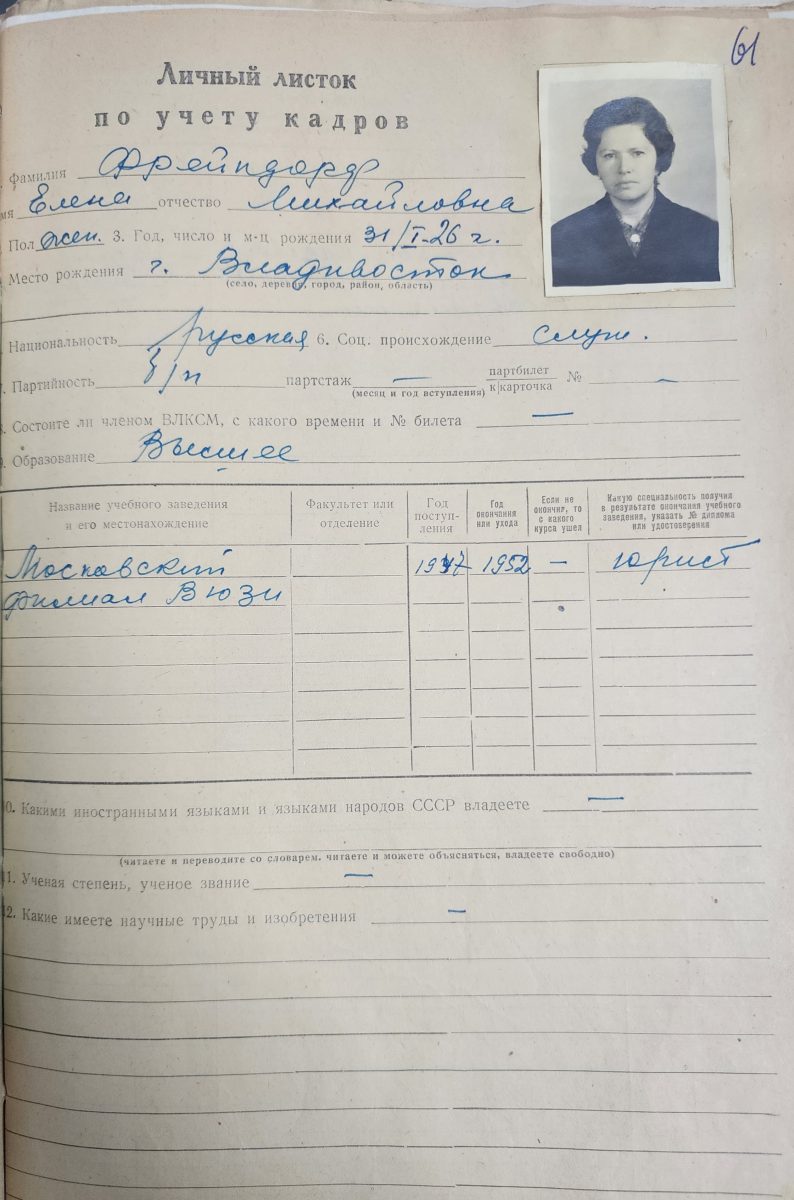 61
Личный листок
по учету кадров
Фамилия Фрейндорф
мя Елена отчество Михайловна
Пол жен. 3. Год, число и м-ц рождения 31/I-26 г.
Место рождения г. Владивосток
(село, деревня, город, район, область)
Национальность русская 6. Соц. происхождение служ.
7. Партийность б/п партстаж — партбилет к/карточка № —
(месяц и год вступления)
8. Состоите ли членом ВЛКСМ, с какого времени и № билета —
9. Образование Высшее
Название учебного заведения и его местонахождение
Факультет или отделение
Год поступ-ления
Год окончания или ухода
Если не окончил, то с какого курса ушел
Какую специальность получил в результате окончания учебного заведения, указать № диплома или удостоверения
Московский 1947 1952 — юрист
филиал ВЮЗИ
10. Какими иностранными языками и языками народов СССР владеете —
(читаете и переводите со словарем, читаете и можете объясняться, владеете свободно)
11. Ученая степень, ученое звание —
12. Какие имеете научные труды и изобретения —